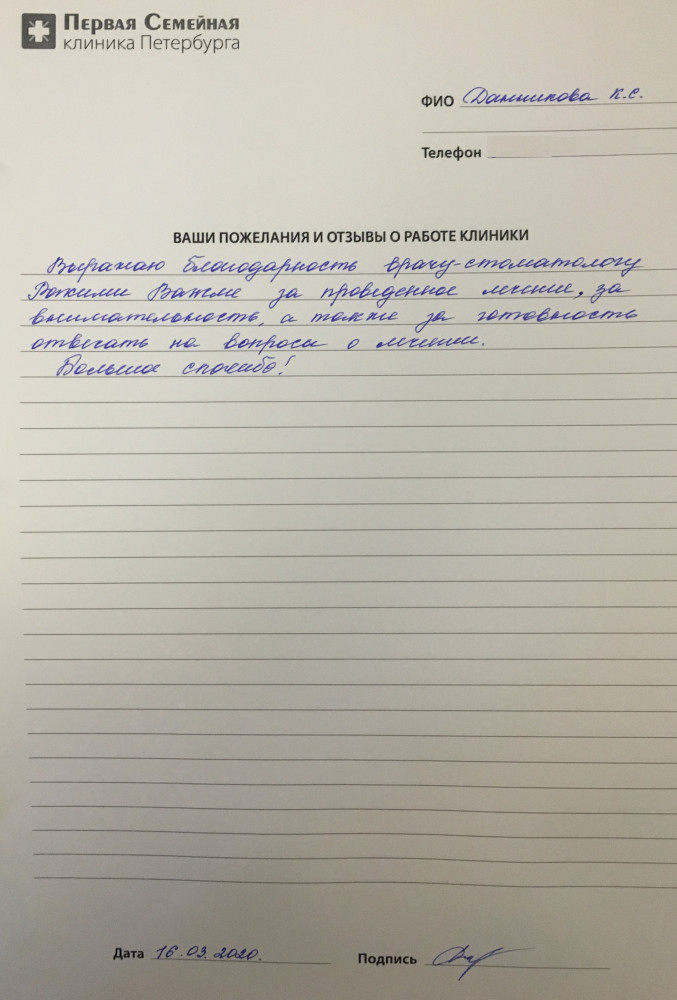 Первая Семейная
клиника Петербурга
ФИО Данникова К.С.
Телефон
ВАШИ ПОЖЕЛАНИЯ И ОТЗЫВЫ О РАБОТЕ КЛИНИКИ
Выражаю благодарность врачу-стоматологу
за проведенное лечение, за
внимательность, а также за готовность
отвечать на вопросы о лечении.
Большое спасибо!
Дата 16.03.2020.
Подпись